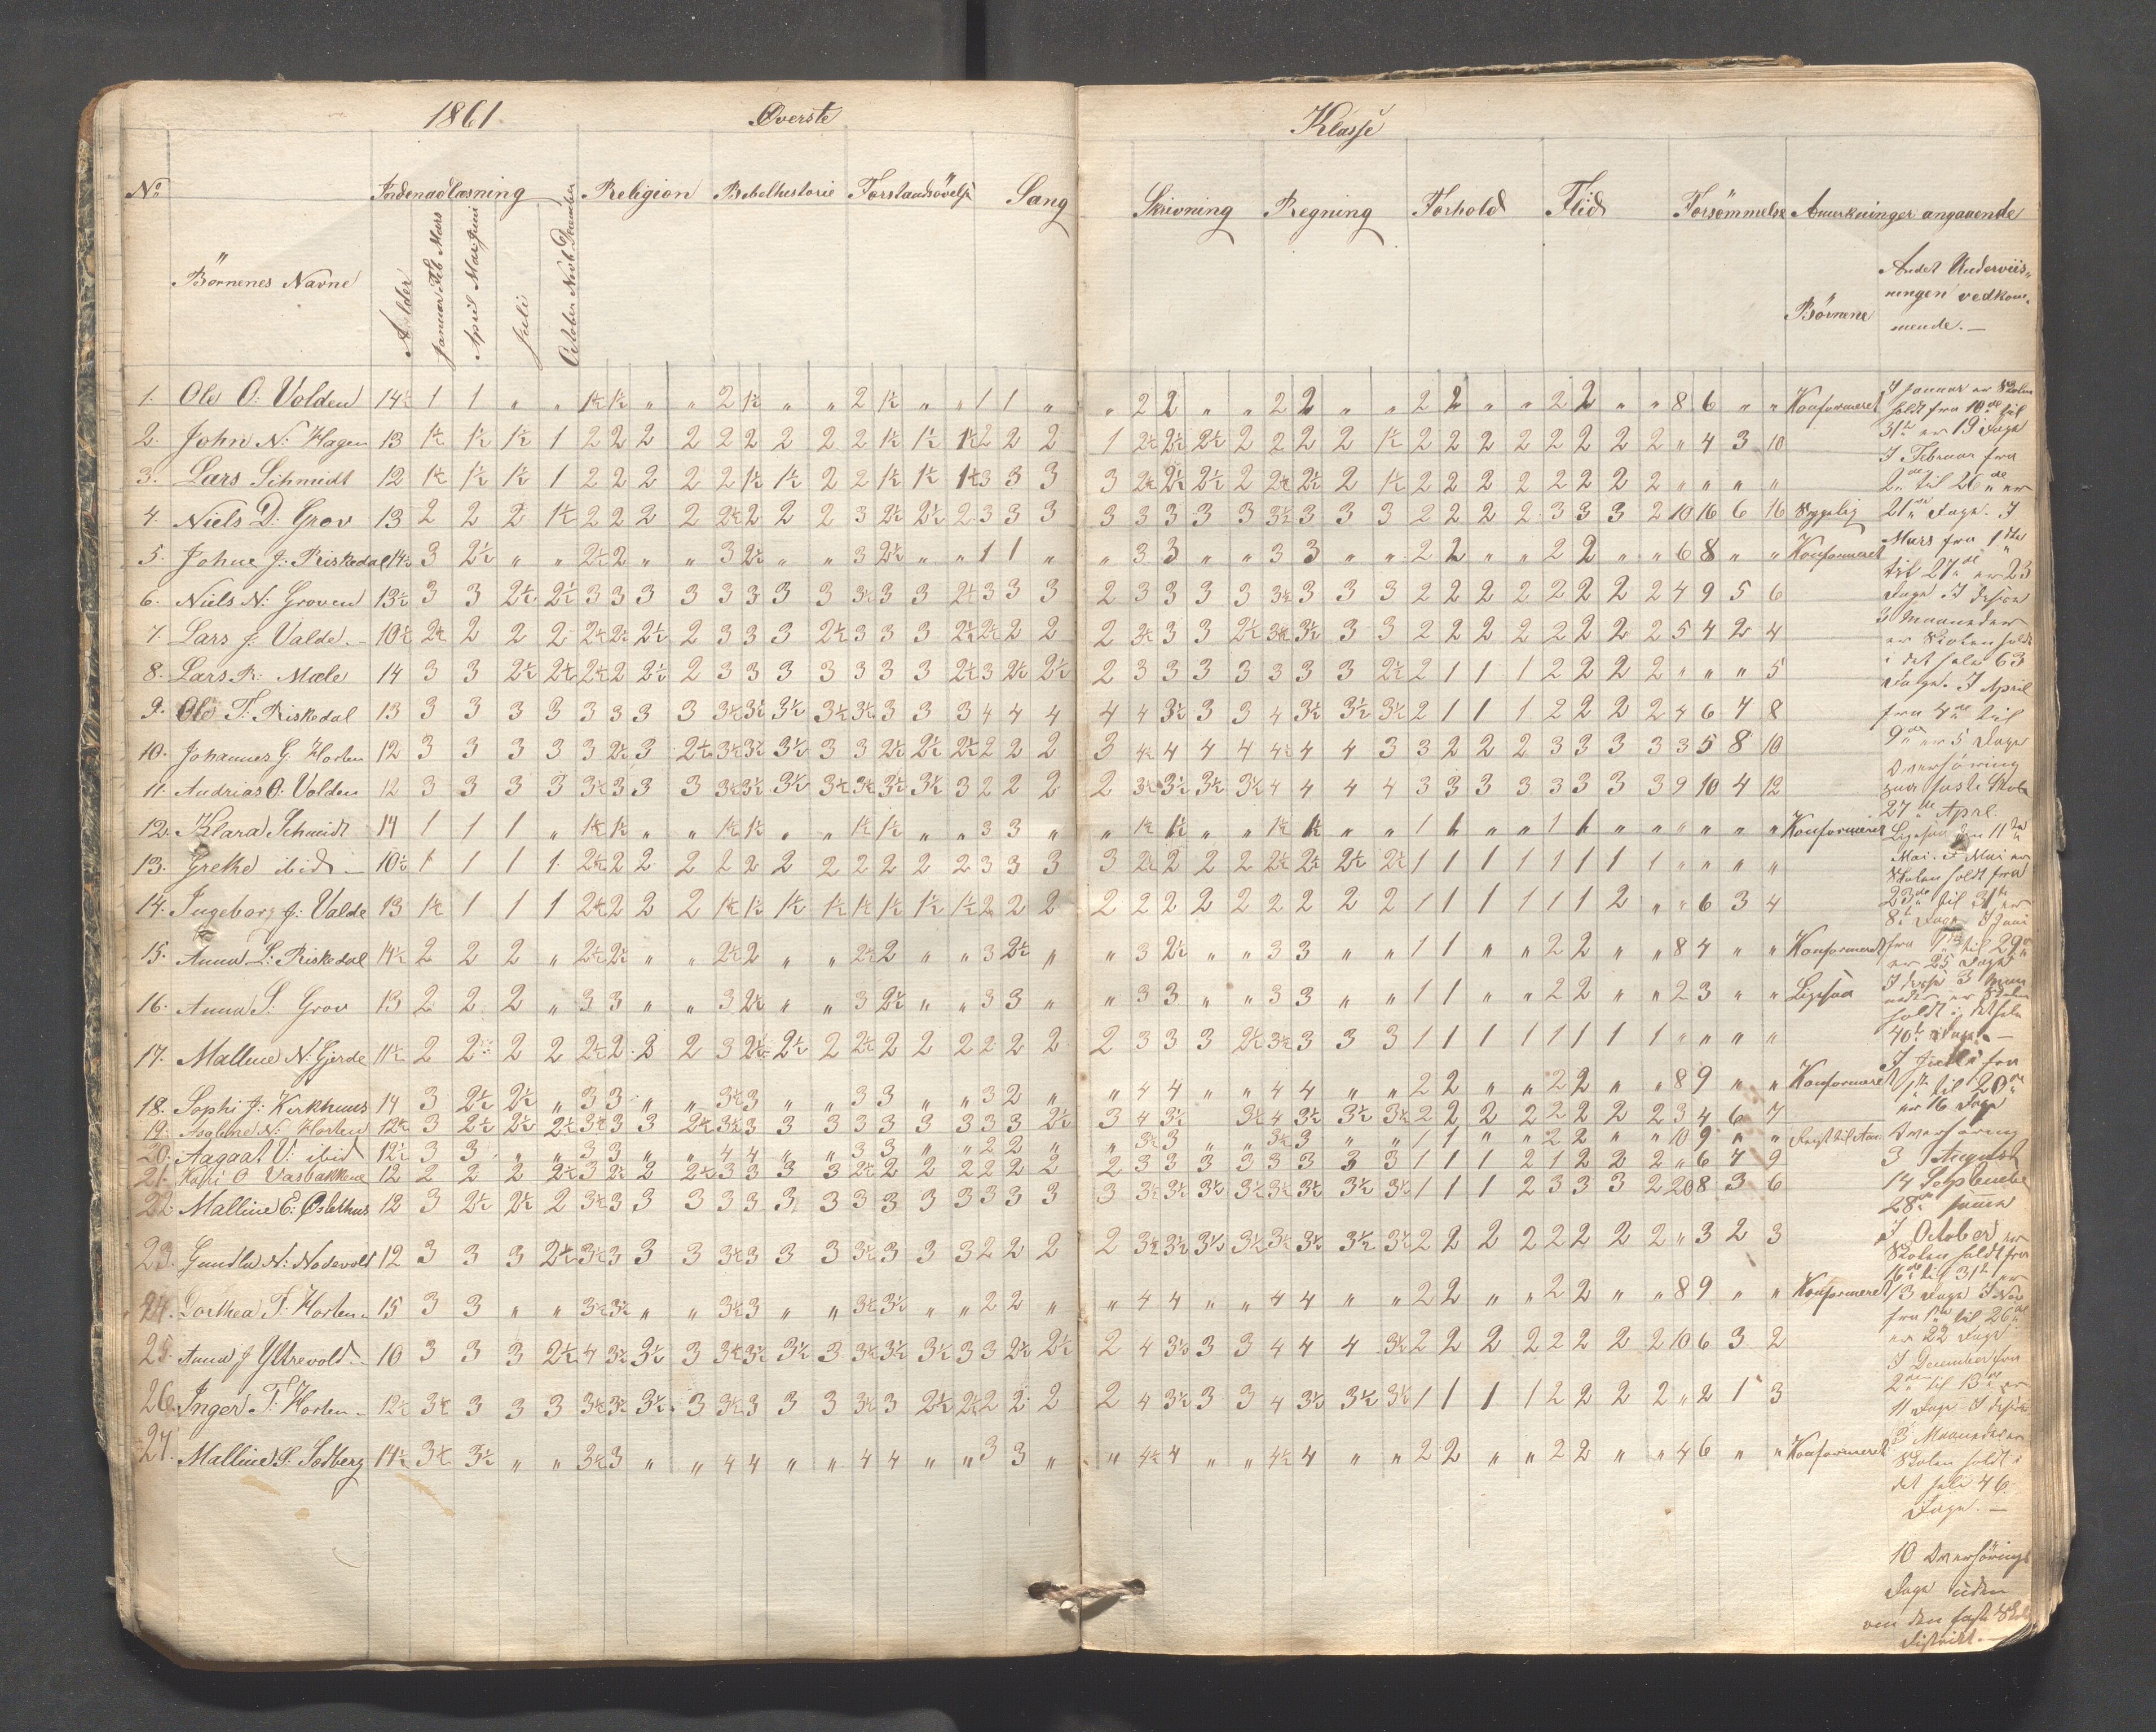 1861 Øverste Klasse
No Börnenes Navne Alder Indenadlæsning Religion Bibelhistorie Forstandsövelse Sang Skrivning Regning Forhold Flid Forsömmelse Anmerkninger angaaende
Januar Feb Mars
April Mai Juni
Juli
October Novb. December
Börnene
Andet Underviis-
ningen vedkom-
mende. —
1. Ole O: Volden 14½ 1 1 " " 1½ 1½ " " 2 1½ " " 2 1½ " " 1 1 " " 2 2 " " 2 2 " " 2 2 " " 2 2 " " 8 6 " " Konformeret
2. John N: Hagen 13 1½ 1½ 1½ 1 2 2 2 2 2 2 2 2 2 1½ 1½ 1½ 2 2 2 1 2½ 2½ 2½ 2 2 2 2 1½ 2 2 2 2 2 2 2 2 " 4 3 10
3. Lars Schmidt 12 1½ 1½ 1½ 1 2 2 2 2 2 1½ 1½ 2 2 1½ 1½ 1½ 3 3 3 3 2½ 2½ 2½ 2 2½ 2½ 2 1½ 2 2 2 2 2 2 2 2 " " " "
4. Niels D: Grov 13 2 2 2 1½ 2 2 2 2 2½ 2 2 2 3 2½ 2½ 2 3 3 3 3 3 3 3 3 3½ 3 3 3 2 2 2 2 3 3 3 2 10 16 6 16 Sygelig
5. Johne J: Riskedal 14½ 3 2½ " " 2½ 2 " " 3 2½ " " 3 2½ " " 1 1 " " 3 3 " " 3 3 " " 2 2 " " 2 2 " " 6 8 " " Konformeret
6. Niels N: Groven 13½ 3 3 2½ 2½ 3 3 3 3 3 3 3 3 3½ 3 3 2½ 3 3 3 2 3 3 3 3 3½ 3 3 3 2 2 2 2 2 2 2 2 4 9 5 6
7. Lars J: Valde — 10½ 2½ 2 2 2 2½ 2½ 2½ 2 3 3 3 2½ 3 3 3 2½ 2½ 2 2 2 3½ 3 3 2½ 3½ 3½ 3 3 2 2 2 2 2 2 2 2 5 4 2 4
8. Lars R: Mæle 14 3 3 2½ 2½ 2½ 2 2½ 2 3 3 3 3 3 3 3 2½ 3 2½ 2½ 2 3 3 3 3 3 3 3 2½ 2 1 1 1 2 2 2 2 " " " 5
9. Ole T: Riskedal 13 3 3 3 3 3 3 3 3 3½ 3½ 3½ 3½ 3½ 3 3 3 4 4 4 4 4 3½ 3 3 4 3½ 3½ 3½ 2 1 1 1 2 2 2 2 4 6 7 8
10. Johannes G: Horten 12 3 3 3 3 3 2½ 3 2½ 3½ 3½ 3½ 3 3 2½ 2½ 2½ 2 2 2 3 4½ 4 4 4 4½ 4 4 3 3 2 2 2 3 3 3 3 3 5 8 10
11. Andrias O: Volden 12 3 3 3 3 3½ 3 3 3 3½ 3½ 3½ 3½ 3½ 3½ 3½ 3 2 2 2 2 3½ 3½ 3½ 3½ 4 4 4 4 3 3 3 3 3 3 3 3 9 10 4 12
12. Klara Schmidt 14 1 1 1 " 1½ 1½ " " 1½ 1½ " " 1½ 1½ " " 3 3 " " 1½ 1½ " " 1½ 1½ " " 1 1 " " 1 1 " " " " " " Konformeret
13. Grethe ibid — 10½ 1 1 1 1 2½ 2 2 2 2 2 2 2 2 2 2 2 3 3 3 3 2½ 2 2 2 2½ 2½ 2½ 2½ 1 1 1 1 1 1 1 1 " " " "
14. Ingeborg J: Valde 13 1½ 1 1 1 2½ 2 2 2 1½ 1½ 1½ 1½ 1½ 1½ 1½ 1½ 2 2 2 2 2 2 2 2 2 2 2 2 1 1 1 1 1 1 2 " " 6 3 4
15. Anna L: Riskedal 14½ 2 2 2 " 2½ 2½ " " 2½ 2 " " 2½ 2 " " 3 2½ " " 3 2½ " " 3 3 " " 1 1 " " 2 2 " " 8 4 " " Konformeret
16. Anna S. Grov 13 2 2 2 " 3 3 " " 3 2½ " " 3 2½ " " 3 3 " " 3 3 " " 3 3 " " 1 1 " " 2 2 " " 2 3 " " Ligesaa
17. Malline N: Gjerde 11½ 2 2 2 2 2½ 2 2 2 3 2½ 2½ 2 2½ 2 2 2 2 2 2 2 3 3 3 2½ 3½ 3 3 3 1 1 1 1 1 1 1 1 " " " "
18. Sophi J: Kirkhuus 14 3 2½ 2½ " 3 3 " " 3½ 3 " " 3 3 " " 3 2 " " 4 4 " " 4 4 " " 2 2 " " 2 2 " " 8 9 " " Konformeret
19. Asgline N: Horten 12½ 3 2½ 2½ 2½ 3½ 3 3 2½ 3½ 3 3 3 3 3 3 3 3 3 2½ 3 4 3½ 3½ 4 3½ 3½ 3½ 2 2 2 2 2 2 2 2 3 4 6 7
20. Aagaat V: ibid 12½ 3 3 " " 3 3 " " 4 4 " " 3 3 " " 2 2 " " 3½ 3 " " 3½ 3 " " 1 1 " " 2 2 " " 10 9 " "
21. Kari O Vasbakken 12 2 2 2 2½ 3 2½ 2 2½ 3 3 3 3 2½ 2 2 2 2 2 2 2 3 3 3 3 3 3 3 3 1 1 1 2 1 2 2 2 " 6 7 9
22. Malline E: Østethus 12 3 2½ 2½ 2 3½ 3 3 3 3 3 3 3 3 3 3 3 3 3 3 3 3½ 3½ 3½ 3½ 3½ 3½ 3½ 3½ 1 1 1 2 3 3 3 2 20 8 3 6
23. Gundla N: Nodevold 12 3 3 3 2½ 3½ 3 3 3 3½ 3 3 3 3½ 3 3 3 2 2 2 2 3½ 3½ 3½ 3½ 3½ 3½ 3½ 3½ 2 2 2 2 2 2 2 2 " 3 2 3
24. Dorthea T: Horten 15 3 3 " " 3½ 3½ " " 3½ 3 " " 3½ 3½ " " 2 2 " " 4 4 " " 4 4 " " 2 2 " " 2 2 " " 8 9 " " Konformeret
25. Anna J Yttrevold 10 3 3 3 2½ 4 3½ 3½ 3 3½ 3½ 3½ 3 3½ 3½ 3½ 3 3 2½ 2½ 2 4 3½ 3 3 4 4 4 3½ 2 2 2 2 2 2 2 2 10 6 3 2
26. Inger T: Horten 12½ 3½ 3 3 3 3½ 3½ 3½ 3 3½ 3 3 3 3½ 3 2½ 2½ 2 2 2 2 4 3½ 3 3 4 3½ 3½ 3½ 1 1 1 1 2 2 2 2 " 2 1 3
27. Malline S. Sedberg 14½ 3½ 3½ " " 3½ 3 " " 4 4 " " 4 4 " " 3 3 " " 4½ 4 " " 4½ 4 " " 2 2 " " 2 2 " " 4 6 " " Konformeret
I Januar er Skolen
holdt fra 10de til
31te er 19 Dage
I Februar fra
2den til 26de er
21de Dage. I
Mars fra 1ste
til 27de er 23
Dage I disse
3 Maaneder
er Skolen holdt
i det hele 63
Dage. I April
fra 4de til
9de er 5 Dage
Overhöring
faste Skole
27de April.
Ligesaa den 11te
Mai. I Mai er
Skolen holdt fra
23de til 31te er
8te Dage I Juni
fra til 29de
er 25 Dage
I disse 3 Maa-
neder er Skolen
holdt i det hele
40te Dage. —
I Juli fra
1ste til 20de
er 16 Dage
Overhöring
3 August
14 Septembe
28de samme
I October er
Skolen holdt fra
16de til 31te er
13 Dage I Nov
fra 1ste til 26de
er 22 Dage
I December fra
2den til 13de er
11 Dage I disse
3 Maaneder er
Skolen holdt i
det hele 46
Dage. —
10 Overhörings
Dage uden
om den faste Skole
District. —